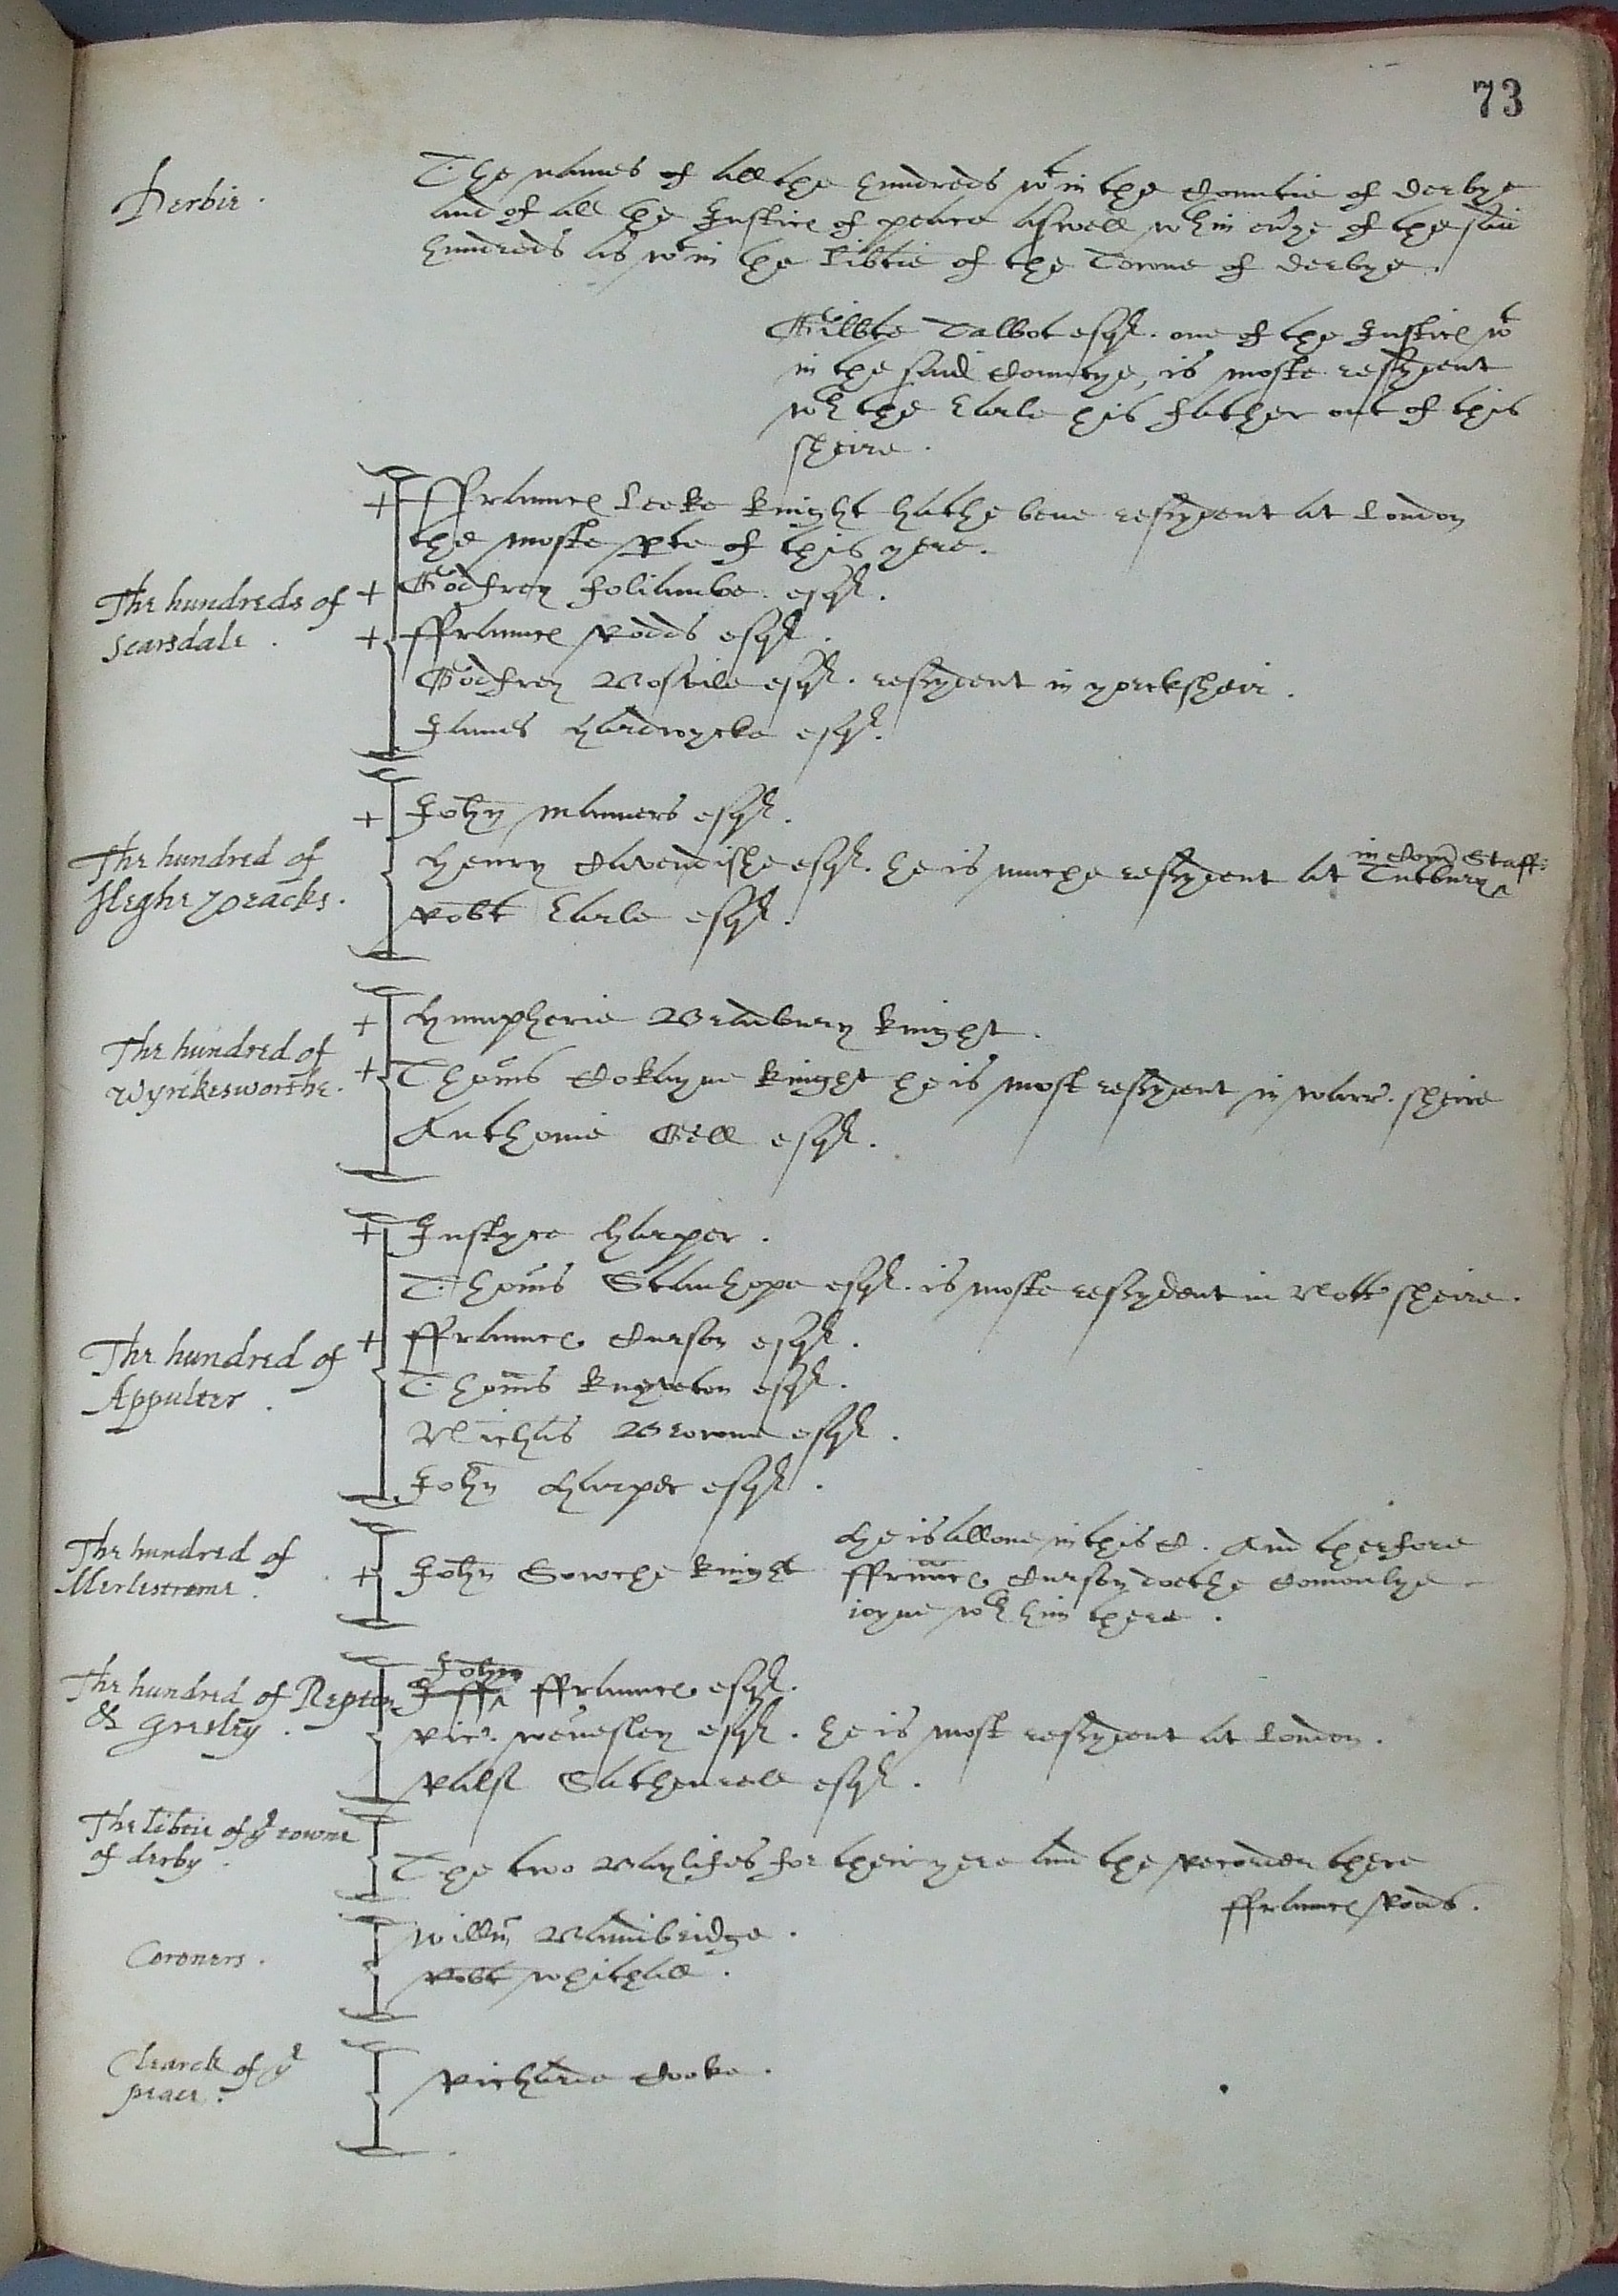 73
Derbie.
The names of all the hundreds wt in the Countie of derbye
and of all the Justics of peace aswell wth in eũye of the said
hundreds as wt in the libtie of the Towne of derbye.
Gilbte Talbot esqr. one of the Justics wt
in the said Countye, is moste resydent
wth the Earle his father out of this
sheire.
The hundreds of
Scarsdale.
+ ffrauncs Leeke knight hathe bene resydent at London
the moste pte of this yere.
+ Godfrey foliambe esqr.
+ ffrauncs Rodds esqr.
Godfrey Bosvile esqr. resydent in yorcksheir.
James hardwycke esqr.
The hundred of
Heghe peacke.
+ John Manners esqr.
in Com Staff:
Henry Cavendishe esqr. he is muche resydent at Tutbury ^
Robt Earle esqr.
The hundred of
Wyrckesworthe.
+ Humpherie Bradbury knight.
+ Thoms Cokayne knight he is most resydent in warr. sheire
Anthonie Gell esqr.
The hundred of
Appultre.
+ Justyce Harper.
Thoms Stanhope esqr. is moste resydent in Nott sheire.
+ ffrauncs Curson esqr.
Thoms knyveton esqr.
Nichas Browne esqr.
John Harper esqr.
The hundred of
Merlestrome.
+ John Sowche knight
He is allone in this C. And therfore
ffrauncs Curson doethe Comonlye
ioyne wth him there.
The hundred of Repton
& Gresley.
John
J ff ^ ffrauncs esqr.
Ric. wenesley esqr. he is most resydent at London.
Ralf Sacheverell esqr.
The libtie of ye towne
of derby.
The two Baylifes for their yere and the Recorder there
ffrauncs Rods.
Coroners.
Willm Bambridge.
Robt whithall.
Clearck of ye
peace.
Richarde Cooke.